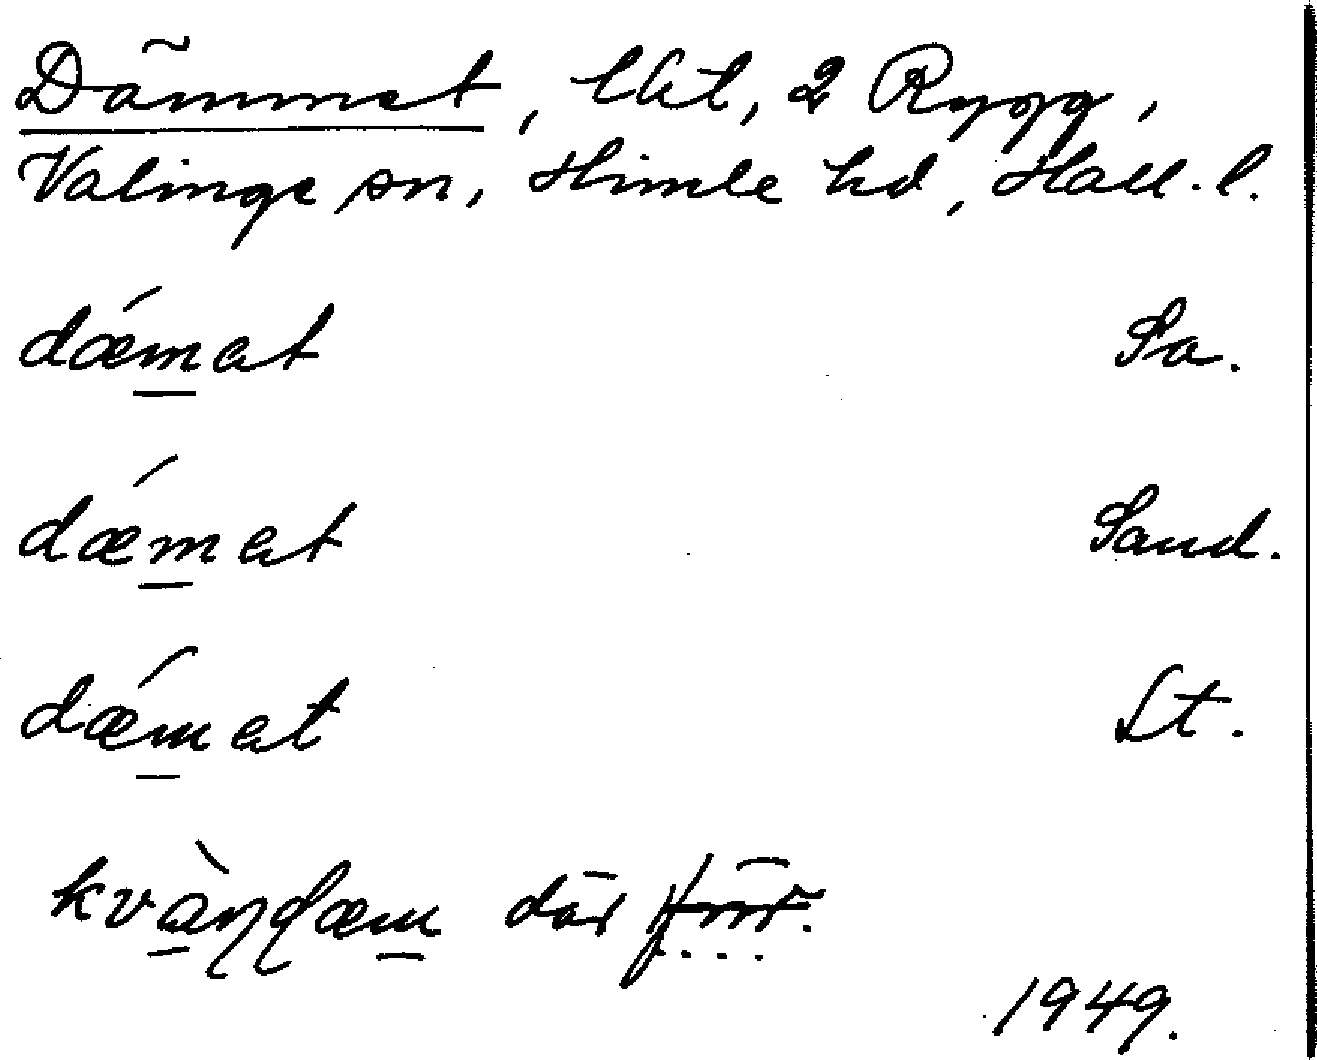 Dämmet, lkt, 2 Rygg,
Valinge sn, Himle hd, Hall. l.
dǽmat Sa.
dǽmat Sand.
dǽmat St.
kvàɳɖæm där förr.
1949.